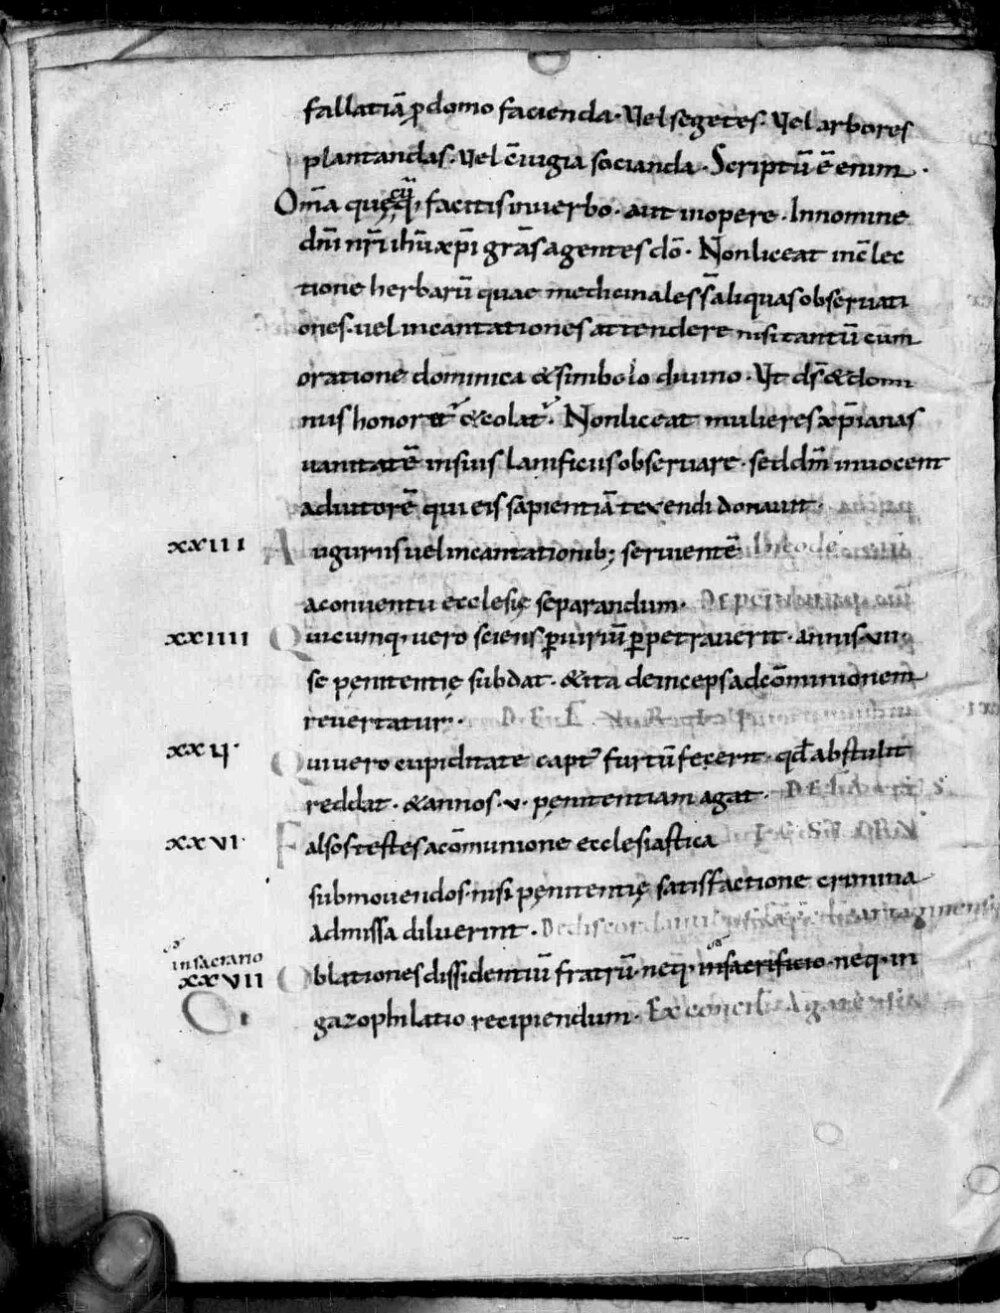 fallatiā ꝑ domo facienda· Vel segetes· Vel arbores
plantandas· Vel c̄iugia socianda· Scriptū ē enim·
Om̄a quęcūq; facitis in uerbo· aut in opere· In nomine
dn̄i nr̄i ihū xp̄i gr̄as agentes dō· Non liceat in c̄lec
tione herbarū quae medicinales s̄ aliquas obseruati
ones· uel incantationes attendere nisi tantū cum
oratione dominica & simbolo diuino· Vt ds̄ & domi
nus honoret᷒ & colat᷒· Non liceat mulieres xp̄ianas
uanitatē in suis lanificiis obseruare· sed dm̄ inuocent
adiutorē qui eis sapientiā texendi donauit·
XXIII Auguriis uel incantationib; seruientē
a conuentu ecclesię separandum·
XXIIII Quicumq· uero sciens ꝑiuriū ꝑpetrauerit· annis VII·
se pęnitentię subdat· & ita deinceps ad cōmunionem
reuertatur·
XXV· Qui uero cupiditate capt᷒ furtū fecerit· qd̄ abstulit
reddat· & annos· v· pęnitentiam agat· DE FALSIS
XXVI· Falsos testes a cōmunione ecclesiastica TESTIBUS
submouendos· nisi pęnitentię satisfactione crimina
admissa diluerint· De discordantibus
in sacrario
XXVII Oblationes dissidentiū fratrū· neq· in sacrificio· neq· in
gazophilatio recipiendum· Ex concilio Agatensi